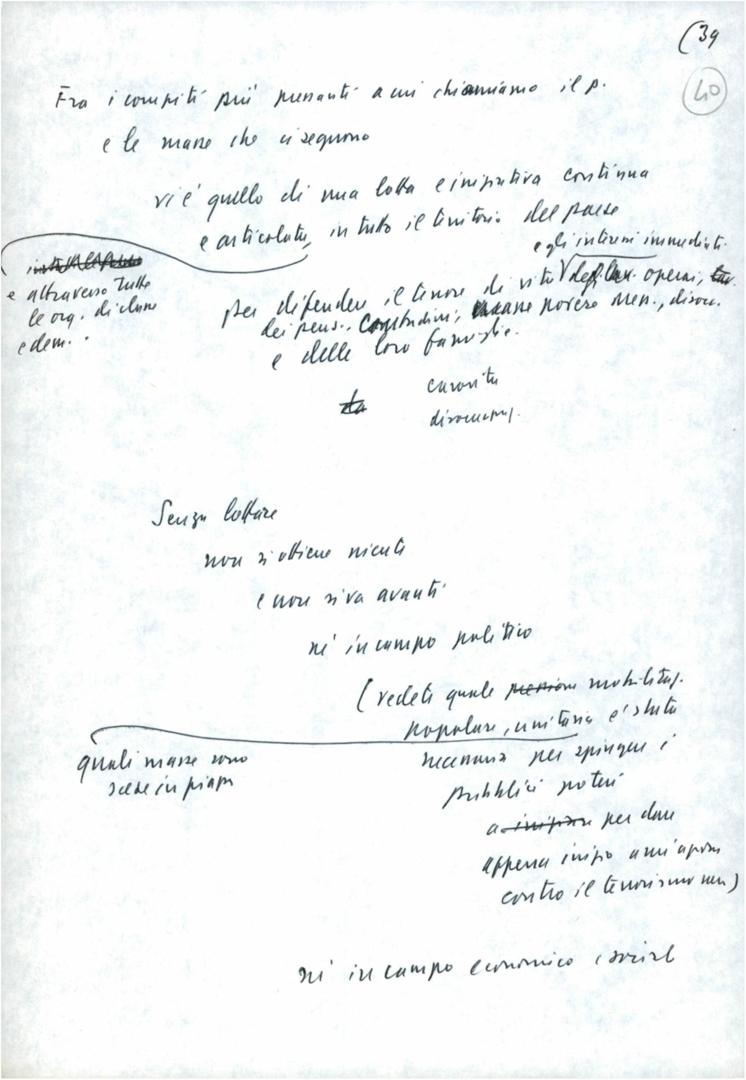 (39
40
Fra i compiti più pressanti a cui chiamiamo il p.
e le masse che ci seguono
vi è quello di una lotta e iniziativa continua
e articolata, in tutto il territorio del paese
e attraverso tutte
le org. di classe
e dem..
e gli interessi immediati
per difendere il tenore di vita degli operai,
dei pens., contadini, masse povere mer., disocc.
e delle loro famiglie.
carovita
disoccupaz.
Senza lottare
non si ottiene niente
e non si va avanti
né in campo politico
(vedete quale pressione mobilitaz.
popolare, unitaria è stata
quali masse sono
scese in piazza
necessaria per spingere i
pubblici poteri
a iniziare per dare
appena inizio a un'azione
contro il terrorismo nero)
né in campo economico e sociale